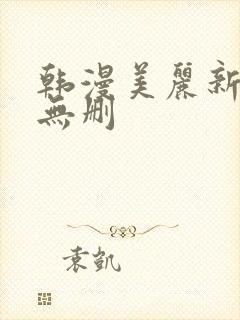 韩漫美麗新
無删
袁凯